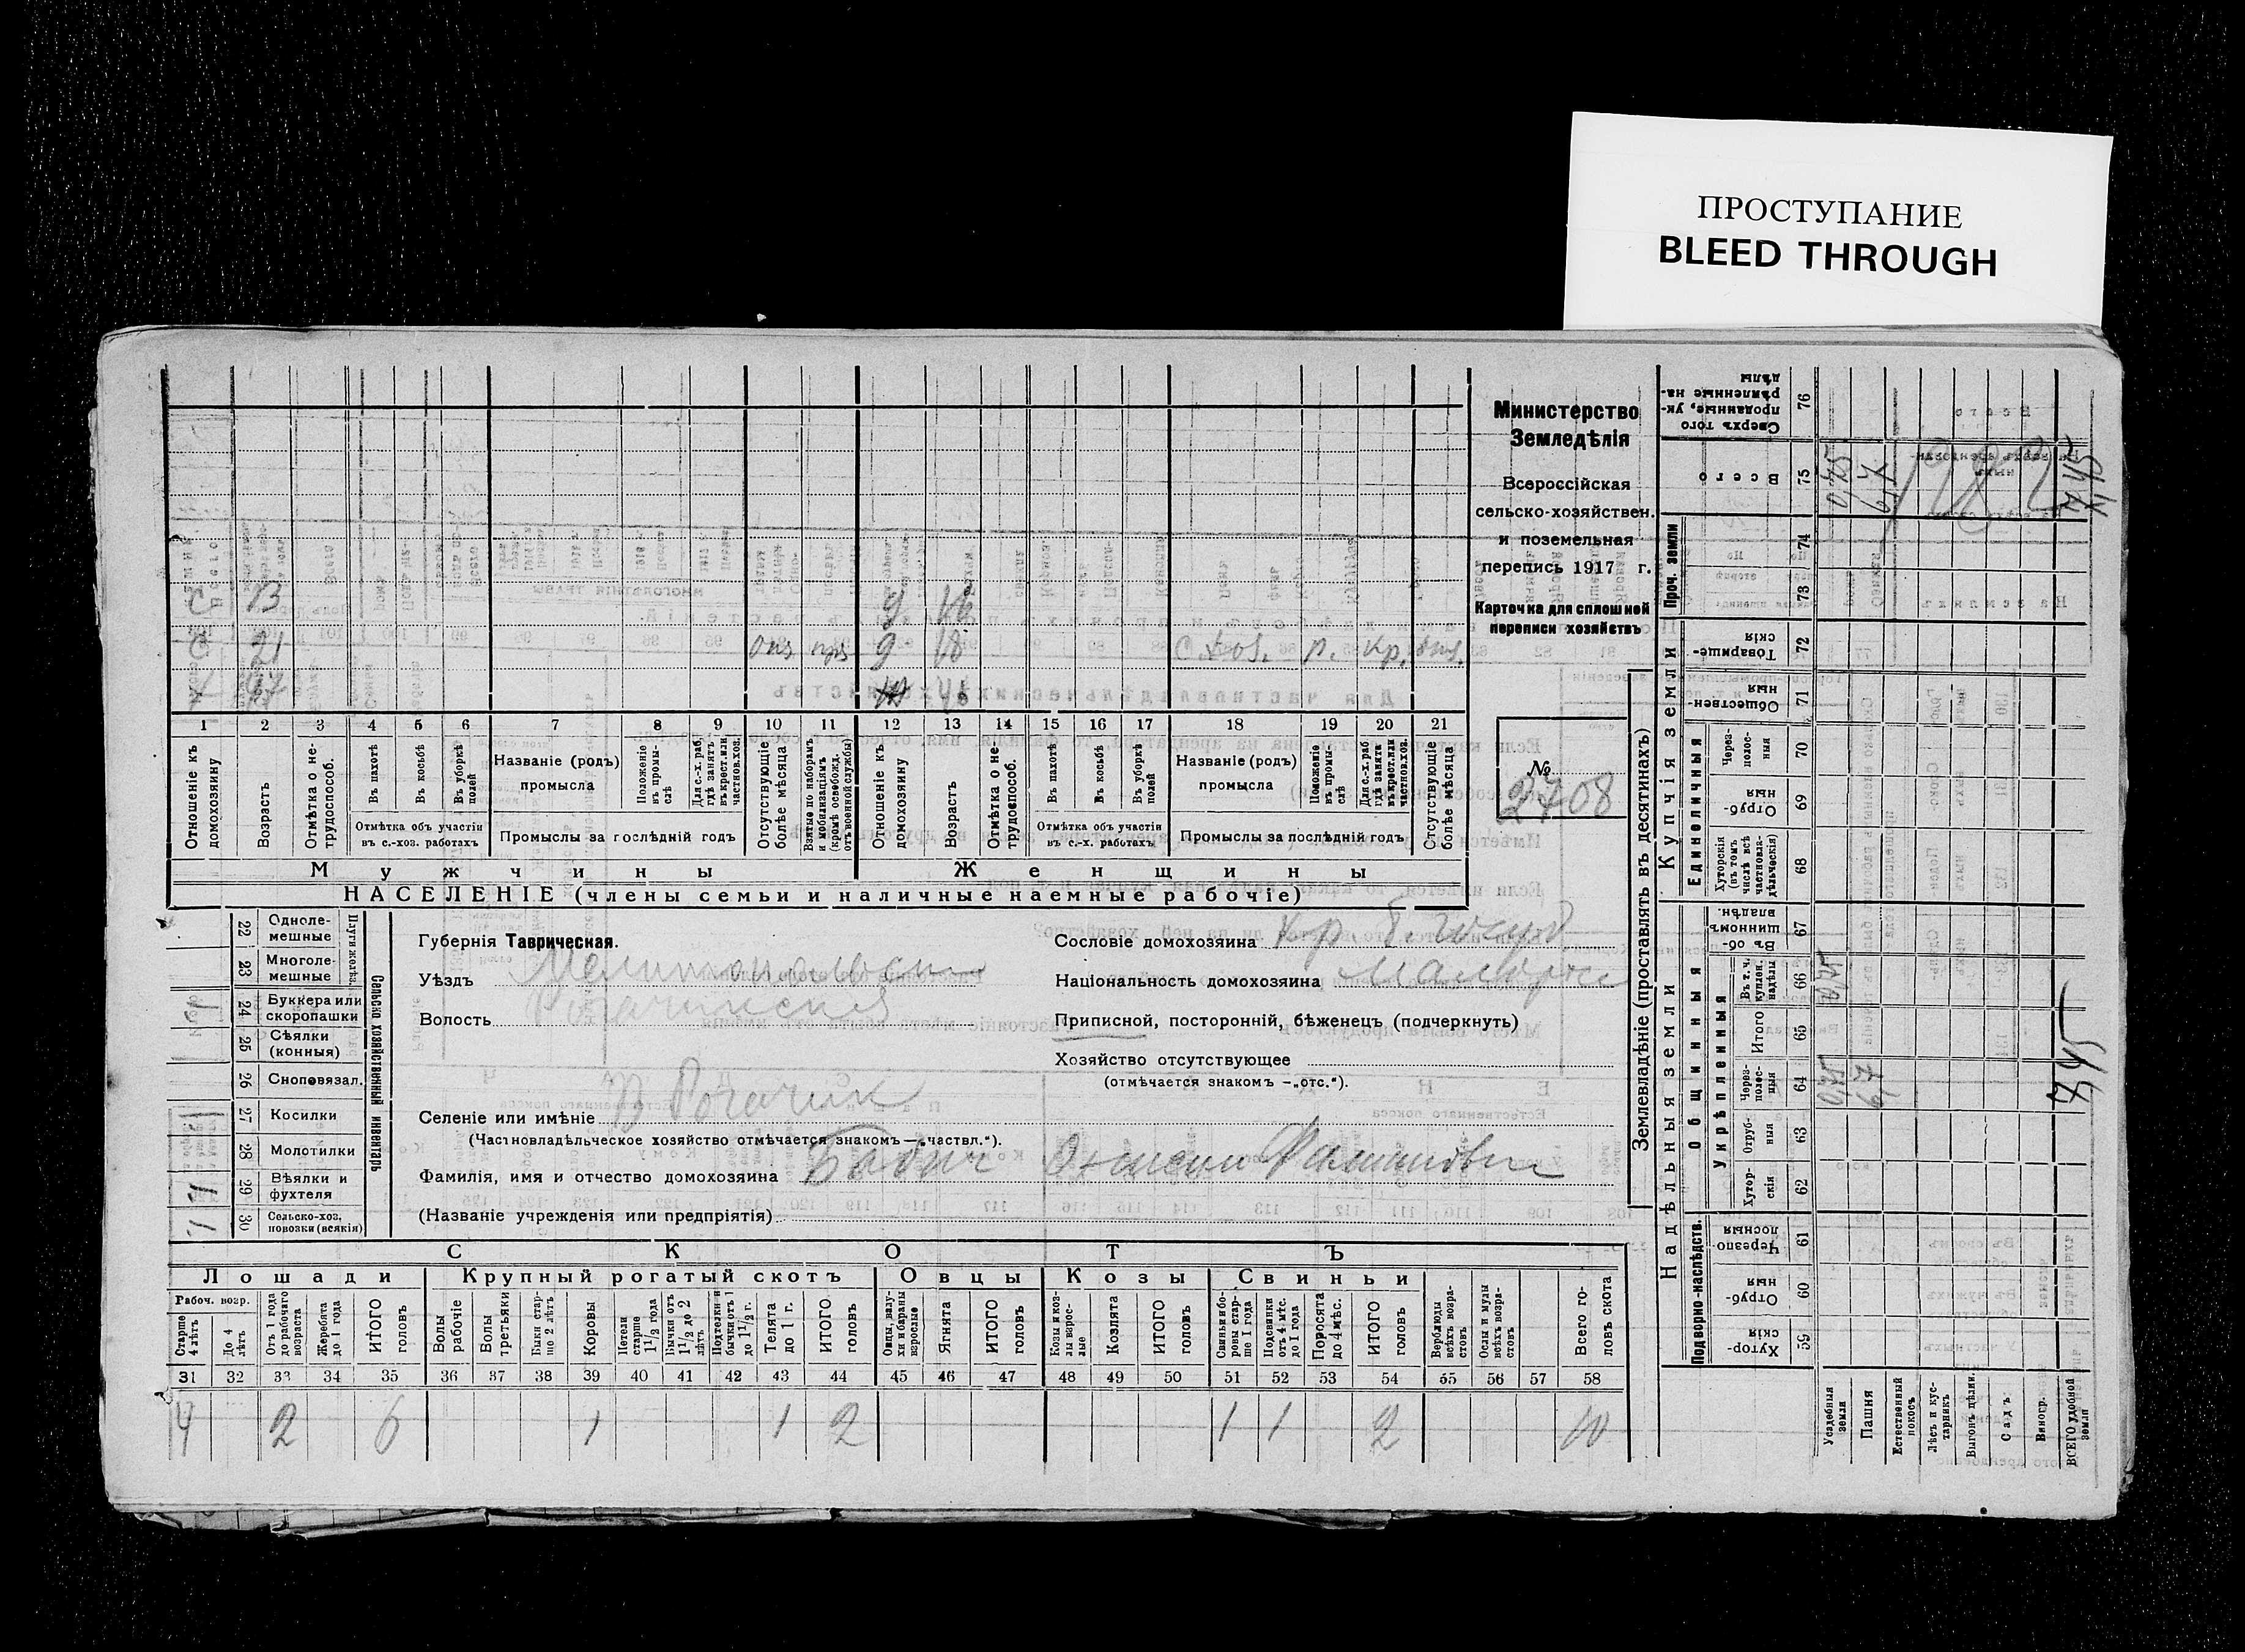 ПРОСТУПАНИЕ
BLEED THROUGH
Министерство
Земледѣлія
Всероссійская
сельско-хозяйствен.
и поземельная
перепись 1917 г.
Карточка для сплошной
переписи хозяйствъ
№
2708
С 13 9 16
С 21 отс 9 18 р. кр. отс.
47 46
1 2 3 4 5 6 7 8 9 10 11 12 13 14 15 16 17 18 19 20 21
Отношеніе къ домохозяину
Возрастъ
Отмѣтка о не-трудоспособ.
Въ пахотѣ
Въ косьбѣ
Въ уборкѣ полей
Отмѣтка объ участіи въ с.-хоз. работахъ
Названіе (родъ) промысла
Положеніе въ промы-слѣ
Для с.-х. раб. гдѣ занятъ въ крест. или частнов. хоз.
Промыслы за послѣдній годъ
Отсутствующіе болѣе мѣсяца
Взятые по наборамъ и мобилизаціямъ (кромѣ освобожд. отъ военной службы)
Отношеніе къ домохозяину
Возрастъ
Отмѣтка о не-трудоспособ.
Въ пахотѣ
Въ косьбѣ
Въ уборкѣ полей
Отмѣтка объ участіи въ с.-х. работахъ
Названіе (родъ) промысла
Положеніе въ промы-слѣ
Для с.-х. раб гдѣ занята въ крест. или частнов. хоз.
Промыслы за послѣдній годъ
Отсутствующіе болѣе мѣсяца
Мужчины Женщины
НАСЕЛЕНІЕ (члены семьи и наличные наемные рабочіе)
22 Одноле-мешные
23 Многоле-мешные
Плуги желѣз.
24 Буккера или скоропашки 1
25 Сѣялки (конныя)
26 Сноповязал.
27 Косилки
28 Молотилки
29 Вѣялки и фухтеля 1
30 Сельско-хоз. повозки (всякія) 1
Сельско хозяйственный инвентарь
Губернія Таврическая.
Уѣздъ Мелитопольскій
Волость Рогачикская
Селеніе или имѣніе В Рогачик
(Частновладѣльческое хозяйство отмѣчается знакомъ — „частвл.").
Фамилія, имя и отчество домохозяина Бабич
(Названіе учрежденія или предпріятія)
Сословіе домохозяина Кр.
Національность домохозяина Малорос
Приписной, посторонній, бѣженецъ (подчеркнуть)
Хозяйство отсутствующее
(отмѣчается знакомъ —„отс.").
СКОТЪ
Лошади Крупный рогатый скотъ Овцы Козы Свиньи
Рабоч. возр.
Старше 4 лѣтъ
До 4 лѣтъ
Отъ 1 года до рабочаго возраста
Жеребята до 1 года
ИТОГО головъ
Волы рабочіе
Волы третьяки
Быки стар-ше 2 лѣтъ
Коровы
Нетели старше 1 1/2 года
Бычки отъ 1 1/2 до 2 лѣтъ
Подтелки и бычки отъ 1 до 1 1/2 г.
Телята до 1 г.
ИТОГО головъ
Овцы, валу-хи и бараны взрослые
Ягнята
ИТОГО головъ
Козы и коз-лы взрос-лые
Козлята
ИТОГО головъ
Свиньи и бо-ровы стар-ше 1 года
Подсвинки отъ 4 мѣс. до 1 года
Поросята до 4 мѣс.
ИТОГО головъ
Верблюды всѣхъ возра-стовъ
Ослы и мулы всѣхъ возра-стовъ
Всего го-ловъ скота
31 32 33 34 35 36 37 38 39 40 41 42 43 44 45 46 47 48 49 50 51 52 53 54 55 56 57 58
4 2 6 1 1 2 1 1 2 10
Землевладѣніе (проставлять въ десятинахъ)
Купчія земли
Надѣльныя земли
Сверхъ того проданные, ук-рѣпленные на-дѣлы 76
Всего 75
Проч. земли 74 73
Товарище-скія 72
Обществен-ныя 71
Единоличныя
Через-полос-ныя 70
Отруб-ныя 69
Хуторскія (въ томъ числѣ всѣ частновла-дѣльческія) 68
Общинныя
Въ об-щинномъ владѣн. 67
Укрѣпленныя
Въ т. ч. куплен. надѣлы 66
Итого 65
Через-полос-ныя 64
Отруб-ныя 63
Хутор-скія 62
Подворно-наслѣдств.
Черезпо-лосныя 61
Отруб-ныя 60
Хутор-скія 59
Усадебная земля
Пашня
Естественный покосъ
Лѣсъ и кус-тарникъ
Выгонъ цѣлин.
Садъ
Виногр.
ВСЕГО удобной земли